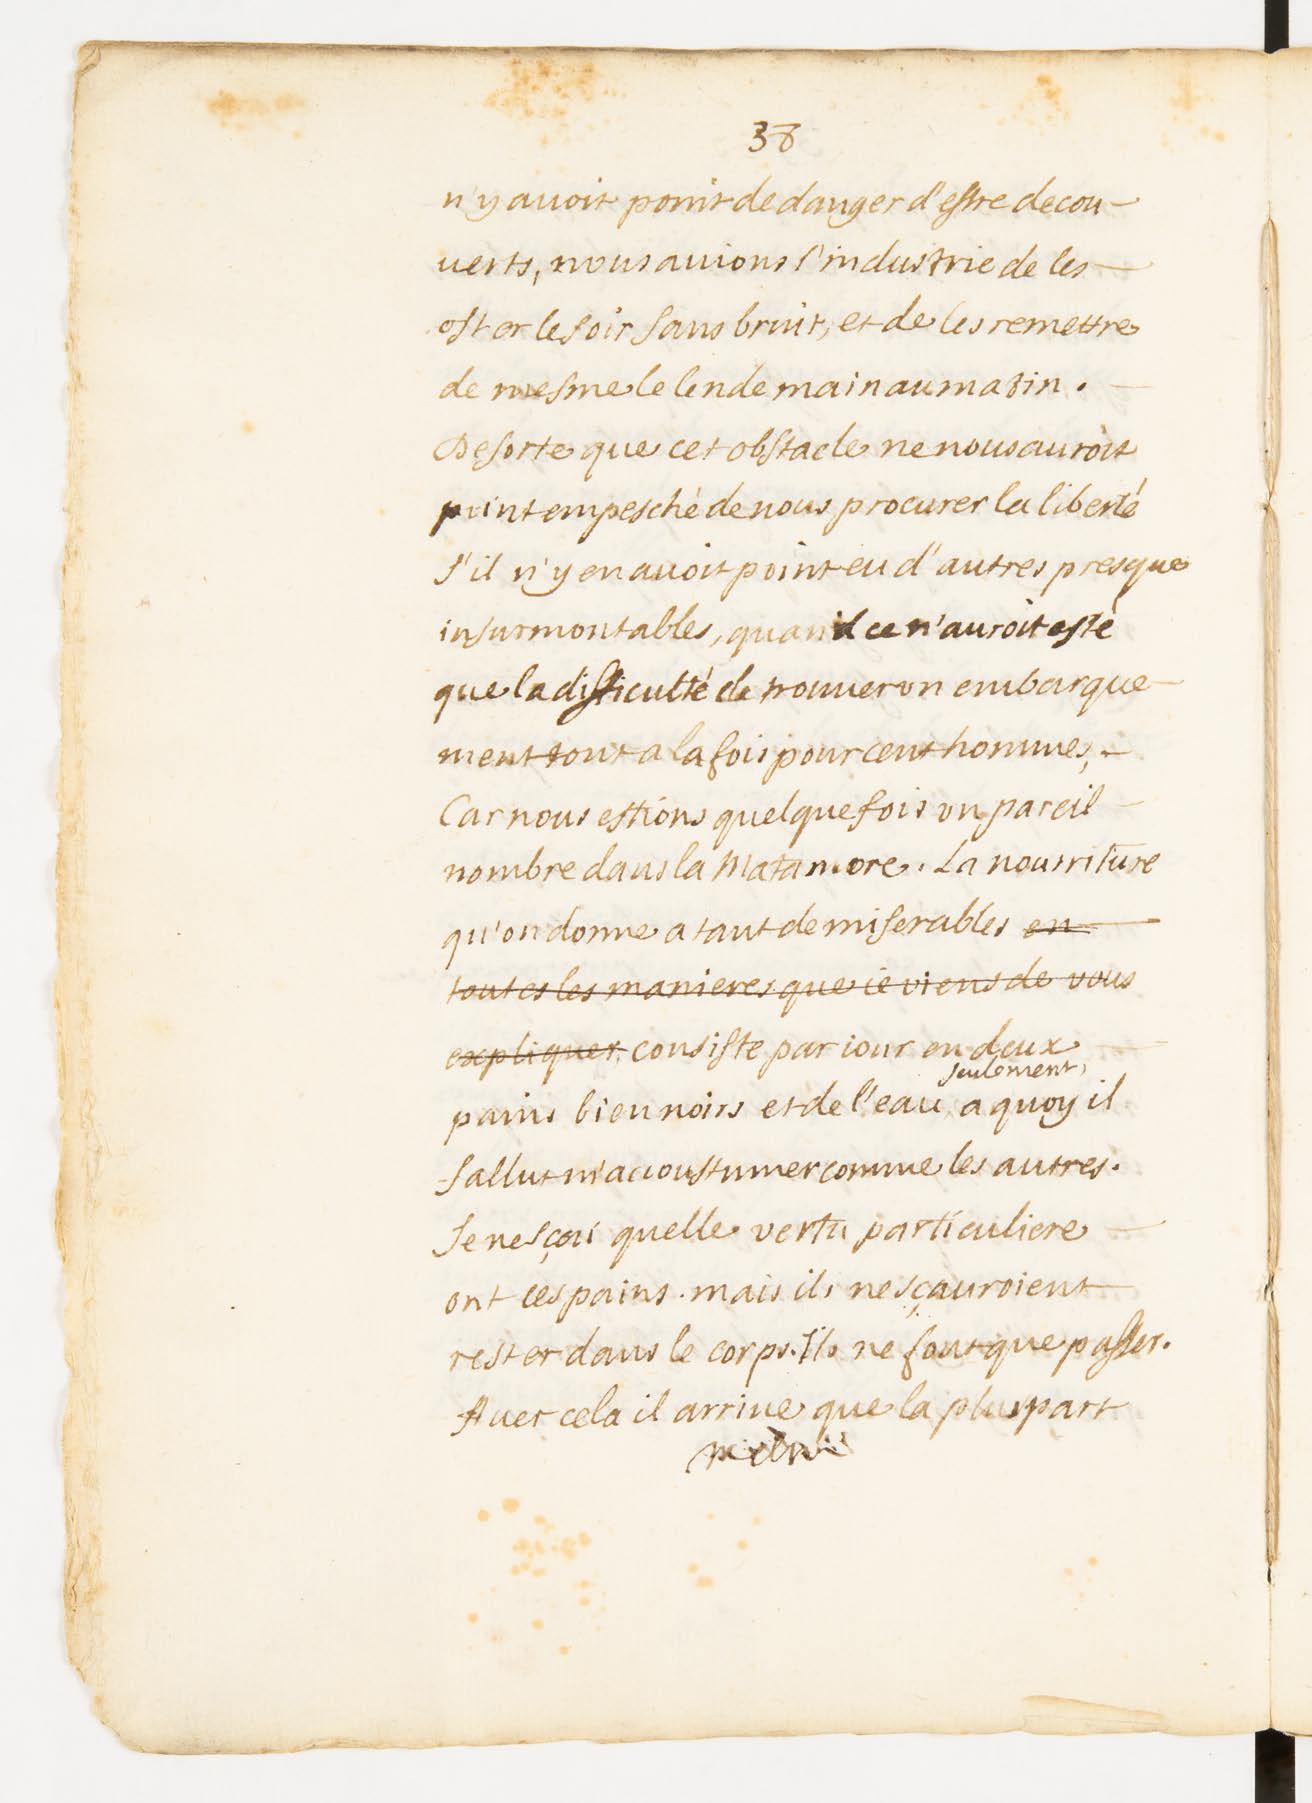 38
n'y auoit point de danger d'estre decou-
uerts, nous auions l'industrie de les
oster le soir sans bruit, et de les remettre
de mesme le lendemain au matin.
De sorte que cet obstacle ne nous auroit
point empesché de nous procurer la liberté
s'il n'y en auoit point eu d'autres presque
insurmontables, quand ce n'auroit esté
que la difficulté de trouuer vn embarque-
ment tout a la fois pour cent hommes,
Car nous estions quelquefois vn pareil
nombre dans la Matamore. La nourriture
qu'on donne a tant de miserables en
toutes les manieres que ie viens de vous
expliquer, consiste par iour en deux
seulement,
pains bien noirs et de l'eau, a quoy il
fallut m'accoustumer comme les autres.
Je ne sçai quelle vertu particuliere
ont ces pains. mais ils ne sçauroient
rester dans le corps. Ils ne font que passer.
Auec cela il arriue que la pluspart